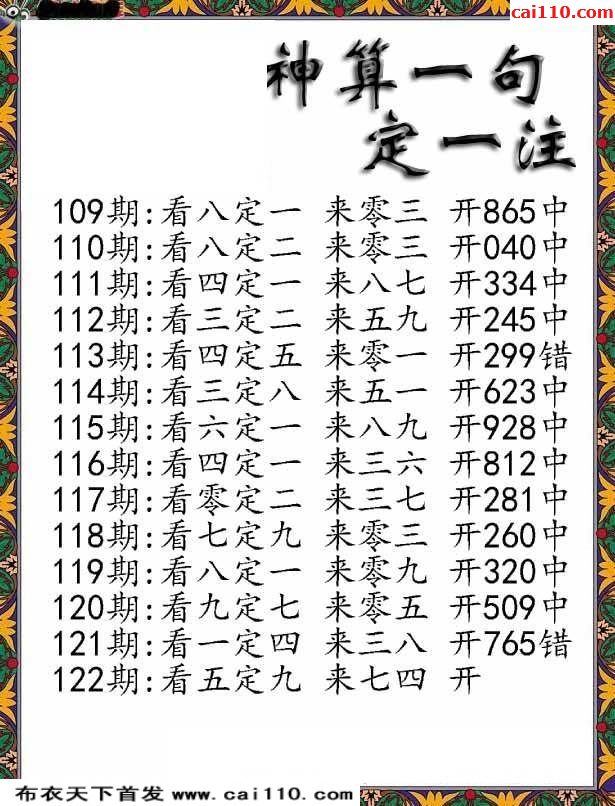 cai110.com
神算一句
定一注
109期:看八定一 来零三 开865中
110期:看八定二 来零三 开040中
111期:看四定一 来八七 开334中
112期:看三定二 来五九 开245中
113期:看四定五 来零一 开299错
114期:看三定八 来五一 开623中
115期:看六定一 来八九 开928中
116期:看四定一 来三六 开812中
117期:看零定二 来三七 开281中
118期:看七定九 来零三 开260中
119期:看八定一 来零九 开320中
120期:看九定七 来零五 开509中
121期:看一定四 来三八 开765错
122期:看五定九 来七四 开
布衣天下首发 www.cai110.com